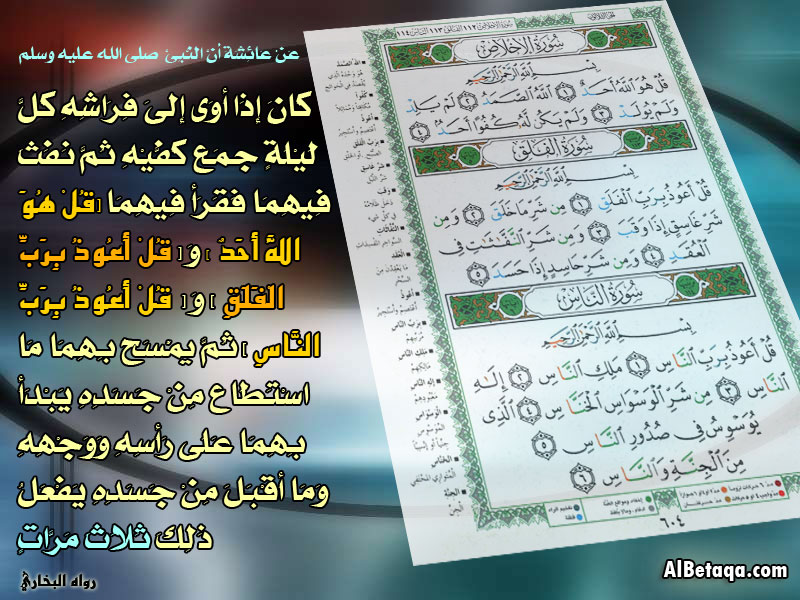 عن عائشة أن النبي صلى الله عليه وسلم
كانَ إذا أوى إلى فراشِهِ كلَّ
ليْلةٍ جمَع كفّيْهِ ثمَّ نفث
فِيهمَا فقرأ فيهِمَا {قُلْ هُوَ
اللهُ أَحَدٌ } وَ{ قُلْ أعُوذُ بِرَبِّ
الْفَلَقِ } وَ{ قُلْ أعُوذُ بِرَبِّ
النَّاسِ } ثمَّ يمْسَح بهِمَا مَا
اسْتطاع مِنْ جسَدِهِ يَبْدَأ
بهِمَا عَلى رَأسِهِ ووَجْههِ
وَما أقبَلَ مِنْ جسَدِهِ يَفْعلُ
ذلِكَ ثلاث مَرَّاتٍ
رواه البخاري
سُورَةُ الإِخْلَاصِ ١١٢ الفَلَق ١١٣ النَّاس ١١٤
سُورَةُ الإِخْلَاصِ
بِسْمِ اللَّهِ الرَّحْمَٰنِ الرَّحِيمِ
قُلْ هُوَ اللَّهُ أَحَدٌ ١ اللَّهُ الصَّمَدُ ٢ لَمْ يَلِدْ
وَلَمْ يُولَدْ ٣ وَلَمْ يَكُن لَّهُ كُفُوًا أَحَدٌ ٤
سُورَةُ الفَلَقِ
بِسْمِ اللَّهِ الرَّحْمَٰنِ الرَّحِيمِ
قُلْ أَعُوذُ بِرَبِّ الْفَلَقِ ١ مِن شَرِّ مَا خَلَقَ ٢ وَمِن
شَرِّ غَاسِقٍ إِذَا وَقَبَ ٣ وَمِن شَرِّ النَّفَّاثَاتِ فِي
الْعُقَدِ ٤ وَمِن شَرِّ حَاسِدٍ إِذَا حَسَدَ ٥
سُورَةُ النَّاسِ
بِسْمِ اللَّهِ الرَّحْمَٰنِ الرَّحِيمِ
قُلْ أَعُوذُ بِرَبِّ النَّاسِ ١ مَلِكِ النَّاسِ ٢ إِلَٰهِ
النَّاسِ ٣ مِن شَرِّ الْوَسْوَاسِ الْخَنَّاسِ ٤ الَّذِي
يُوَسْوِسُ فِي صُدُورِ النَّاسِ ٥
مِنَ الْجِنَّةِ وَالنَّاسِ ٦
٦٠٤
AlBetaqa.com